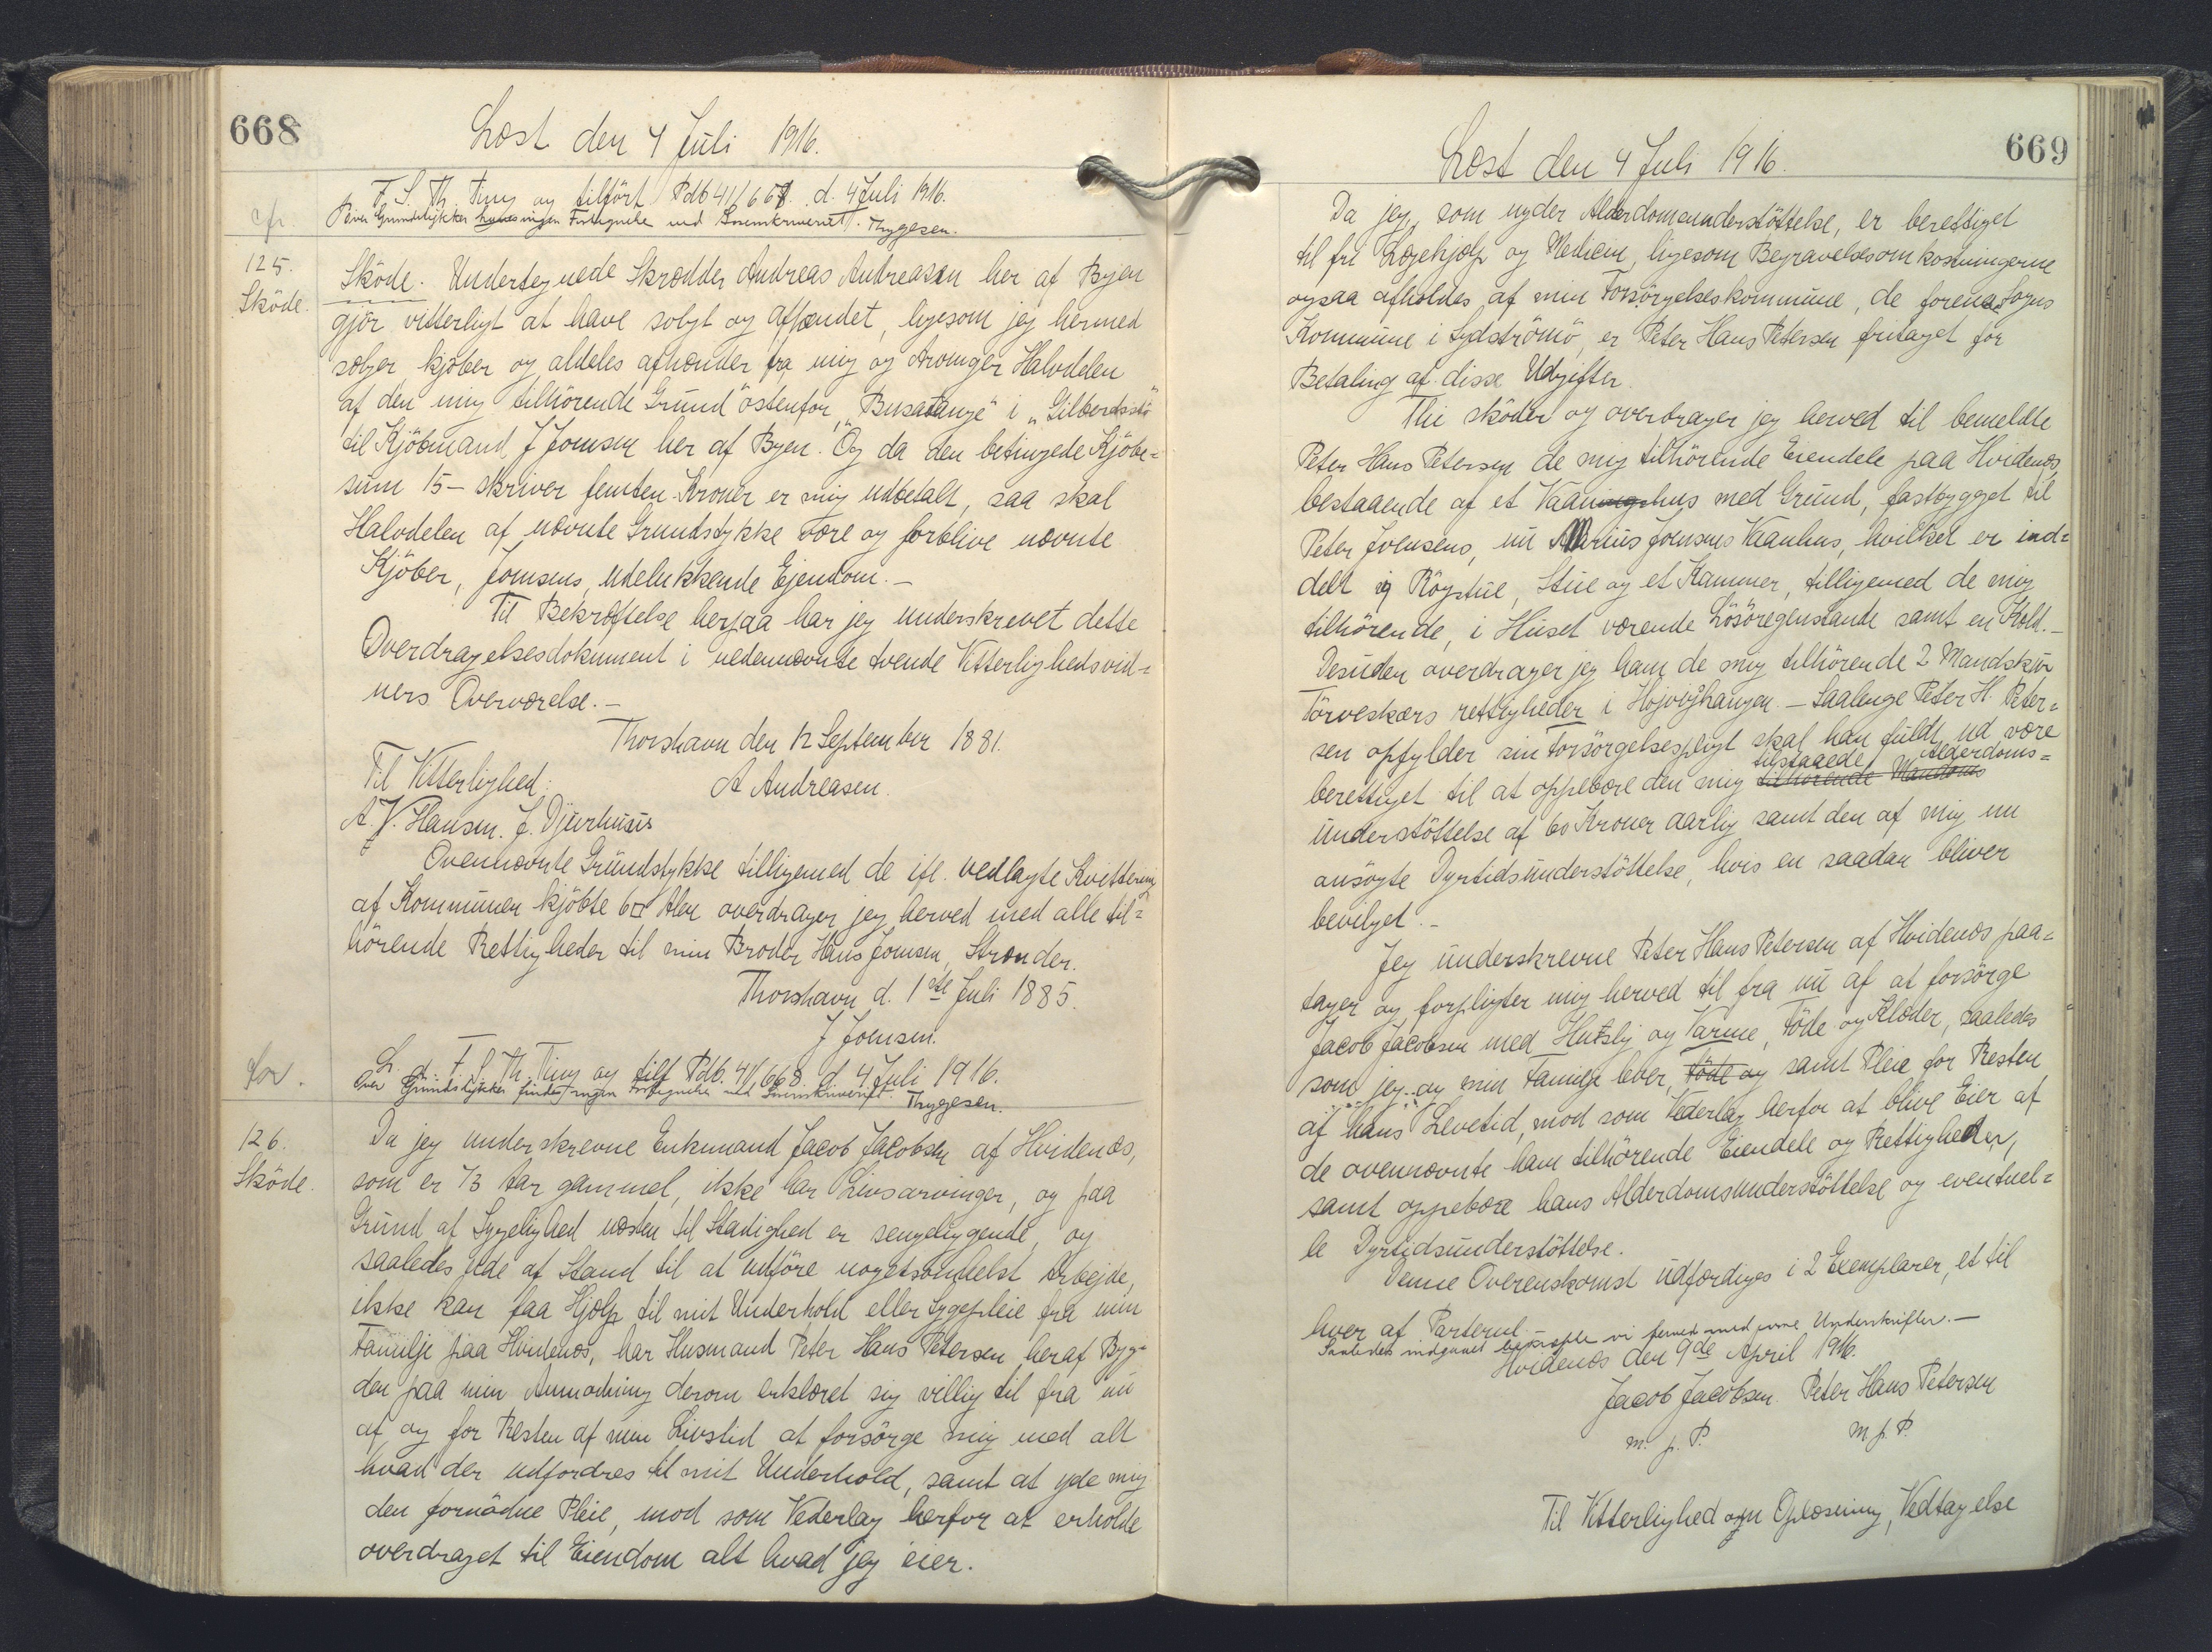 668
Læst den 4 Juli 1916.
F. S. Th. Ting og tilført Pdb 41/668. d. 4 Juli 1916.
cfr.
over Grundstykker haves ingen Fortegnelse ved Sorenskriveriet. Thygesen.
125.
Sköde.
Sköde. Undertegnede Skrædder Andreas Andreasen her af Byen
gjör vitterligt at have solgt og afhændet, ligesom jeg hermed
sælger kjöber og aldeles afhænder fra mig og Arvinger Halvdelen
af den mig tilhörende Grund östenfor „Busatange" i „Gilbordsstö
til Kjöbmand J Joensen her af Byen. Og da den betingede Kjöbe=
sum 15- skriver femten Kroner er mig udbetalt, saa skal
Halvdelen af nævnte Grundstykke være og forblive nævnte
Kjöber, Joensens, udelukkende Ejendom.-
Til Bekræftelse herpaa har jeg underskrevet dette
Overdragelsesdokument i nedennævnte tvende Vitterlighedsvid=
ners Overværelse.-
Thorshavn den 12 September 1881.
Til Vitterlighed: A Andreasen.
A. V. Hansen. J. Djurhuus
Ovennævnte Grundstykke tilligemed de ifl. vedlagte Kvittering
af Kommunen kjöbte 6□ Alen overdrager jeg herved med alle til=
hörende Rettigheder til min Broder Hans Joensen, Strænder.
Thorshavn d. 1ste Juli 1885.
J Joensen.
L. d. F. S. Th. Ting og tilf Pdb. 41/668 d 4 Juli 1916.
over Grundstykker findes ingen Fortegnelse ved Sorenskriveriet. Thygesen.
126.
Sköde.
Da jeg underskrevne Enkemand Jacob Jacobsen af Hvidenæs,
som er 73 Aar gammel, ikke har Livsarvinger, og paa
Grund af Sygelighed næsten til Stadighed er sengeliggende, og
saaledes ude af Stand til at udföre nogetsomhelst Arbejde,
ikke kan faa Hjælp til mit Underhold eller Sygepleie fra min
Familje paa Hvidenæs, har Husmand Peter Hans Petersen heraf Byg=
den paa min Anmodning derom erklæret sig villig til fra nu
af og for Resten af min Livstid at forsörge mig med alt
hvad der udfordres til mit Underhold, samt at yde mig
den fornödne Pleie, mod som Vederlag herfor at erholde
overdraget til Eiendom alt hvad jeg eier.
669
Læst den 4 Juli 1916.
Da jeg, som nyder Alderdomsunderstöttelse, er berettiget
til fri Lægehjælp og Medicin, ligesom Begravelsesomkostningerne
ogsaa afholdes af min Forsörgelseskommune, de forenede Sogns
Kommune i Sydströmö, er Peter Hans Petersen fritaget for
Betaling af disse Udgifter.
Thi sköder og overdrager jeg herved til bemeldte
Peter Hans Petersen de mig tilhörende Eiendele paa Hvidenæs,
bestaaende af et Vaaningshus med Grund, fastbygget til
Peter Joensens, nu Marius Joensens Vaanhus, hvilket er ind=
delt i Röystue, Stue og et Kammer, tilligemed de mig
tilhörende, i Huset værende Lösöregenstande samt en Kold.-
Desuden overdrager jeg ham de mig tilhörende 2 Mandskur
Törveskærs rettigheder i Hojvijhaugen.- Saalænge Peter H. Peter=
sen opfylder sin Forsörgelsespligt skal han fuldt ud være
tilstaaede Alderdoms=
berettiget til at oppebære den mig tilhörende Mandoms
understöttelse af 60 Kroner aarlig samt den af mig nu
ansögte Dyrtidsunderstöttelse, hvis en saadan bliver
bevilget.-
Jeg underskrevne Peter Hans Petersen af Hvidenæs paa=
tager og forpligter mig herved til fra nu af at forsörge
Jacob Jacobsen med Husly og Varme, Föde og Klæder, saaledes
som jeg og min Familje lever, föde og samt Pleie for Resten
af hans Levetid, mod som Vederlag herfor at blive Eier af
de ovennævnte ham tilhörende Eiendele og Rettigheder,
samt oppebære hans Alderdomsunderstöttelse og eventuel=
le Dyrtidsunderstöttelse.
Denne Overenskomst udfærdiges i 2 Exemplarer, et til
hver af Parterne.
Saaledes indgaaet bekræfte vi herved med vore Underskrifter.-
Hvidenæs den 9de April 1916.
Jacob Jacobsen. Peter Hans Petersen
m. p. P. m. p. P.
Til Vitterlighed om Oplæsning, Vedtagelse